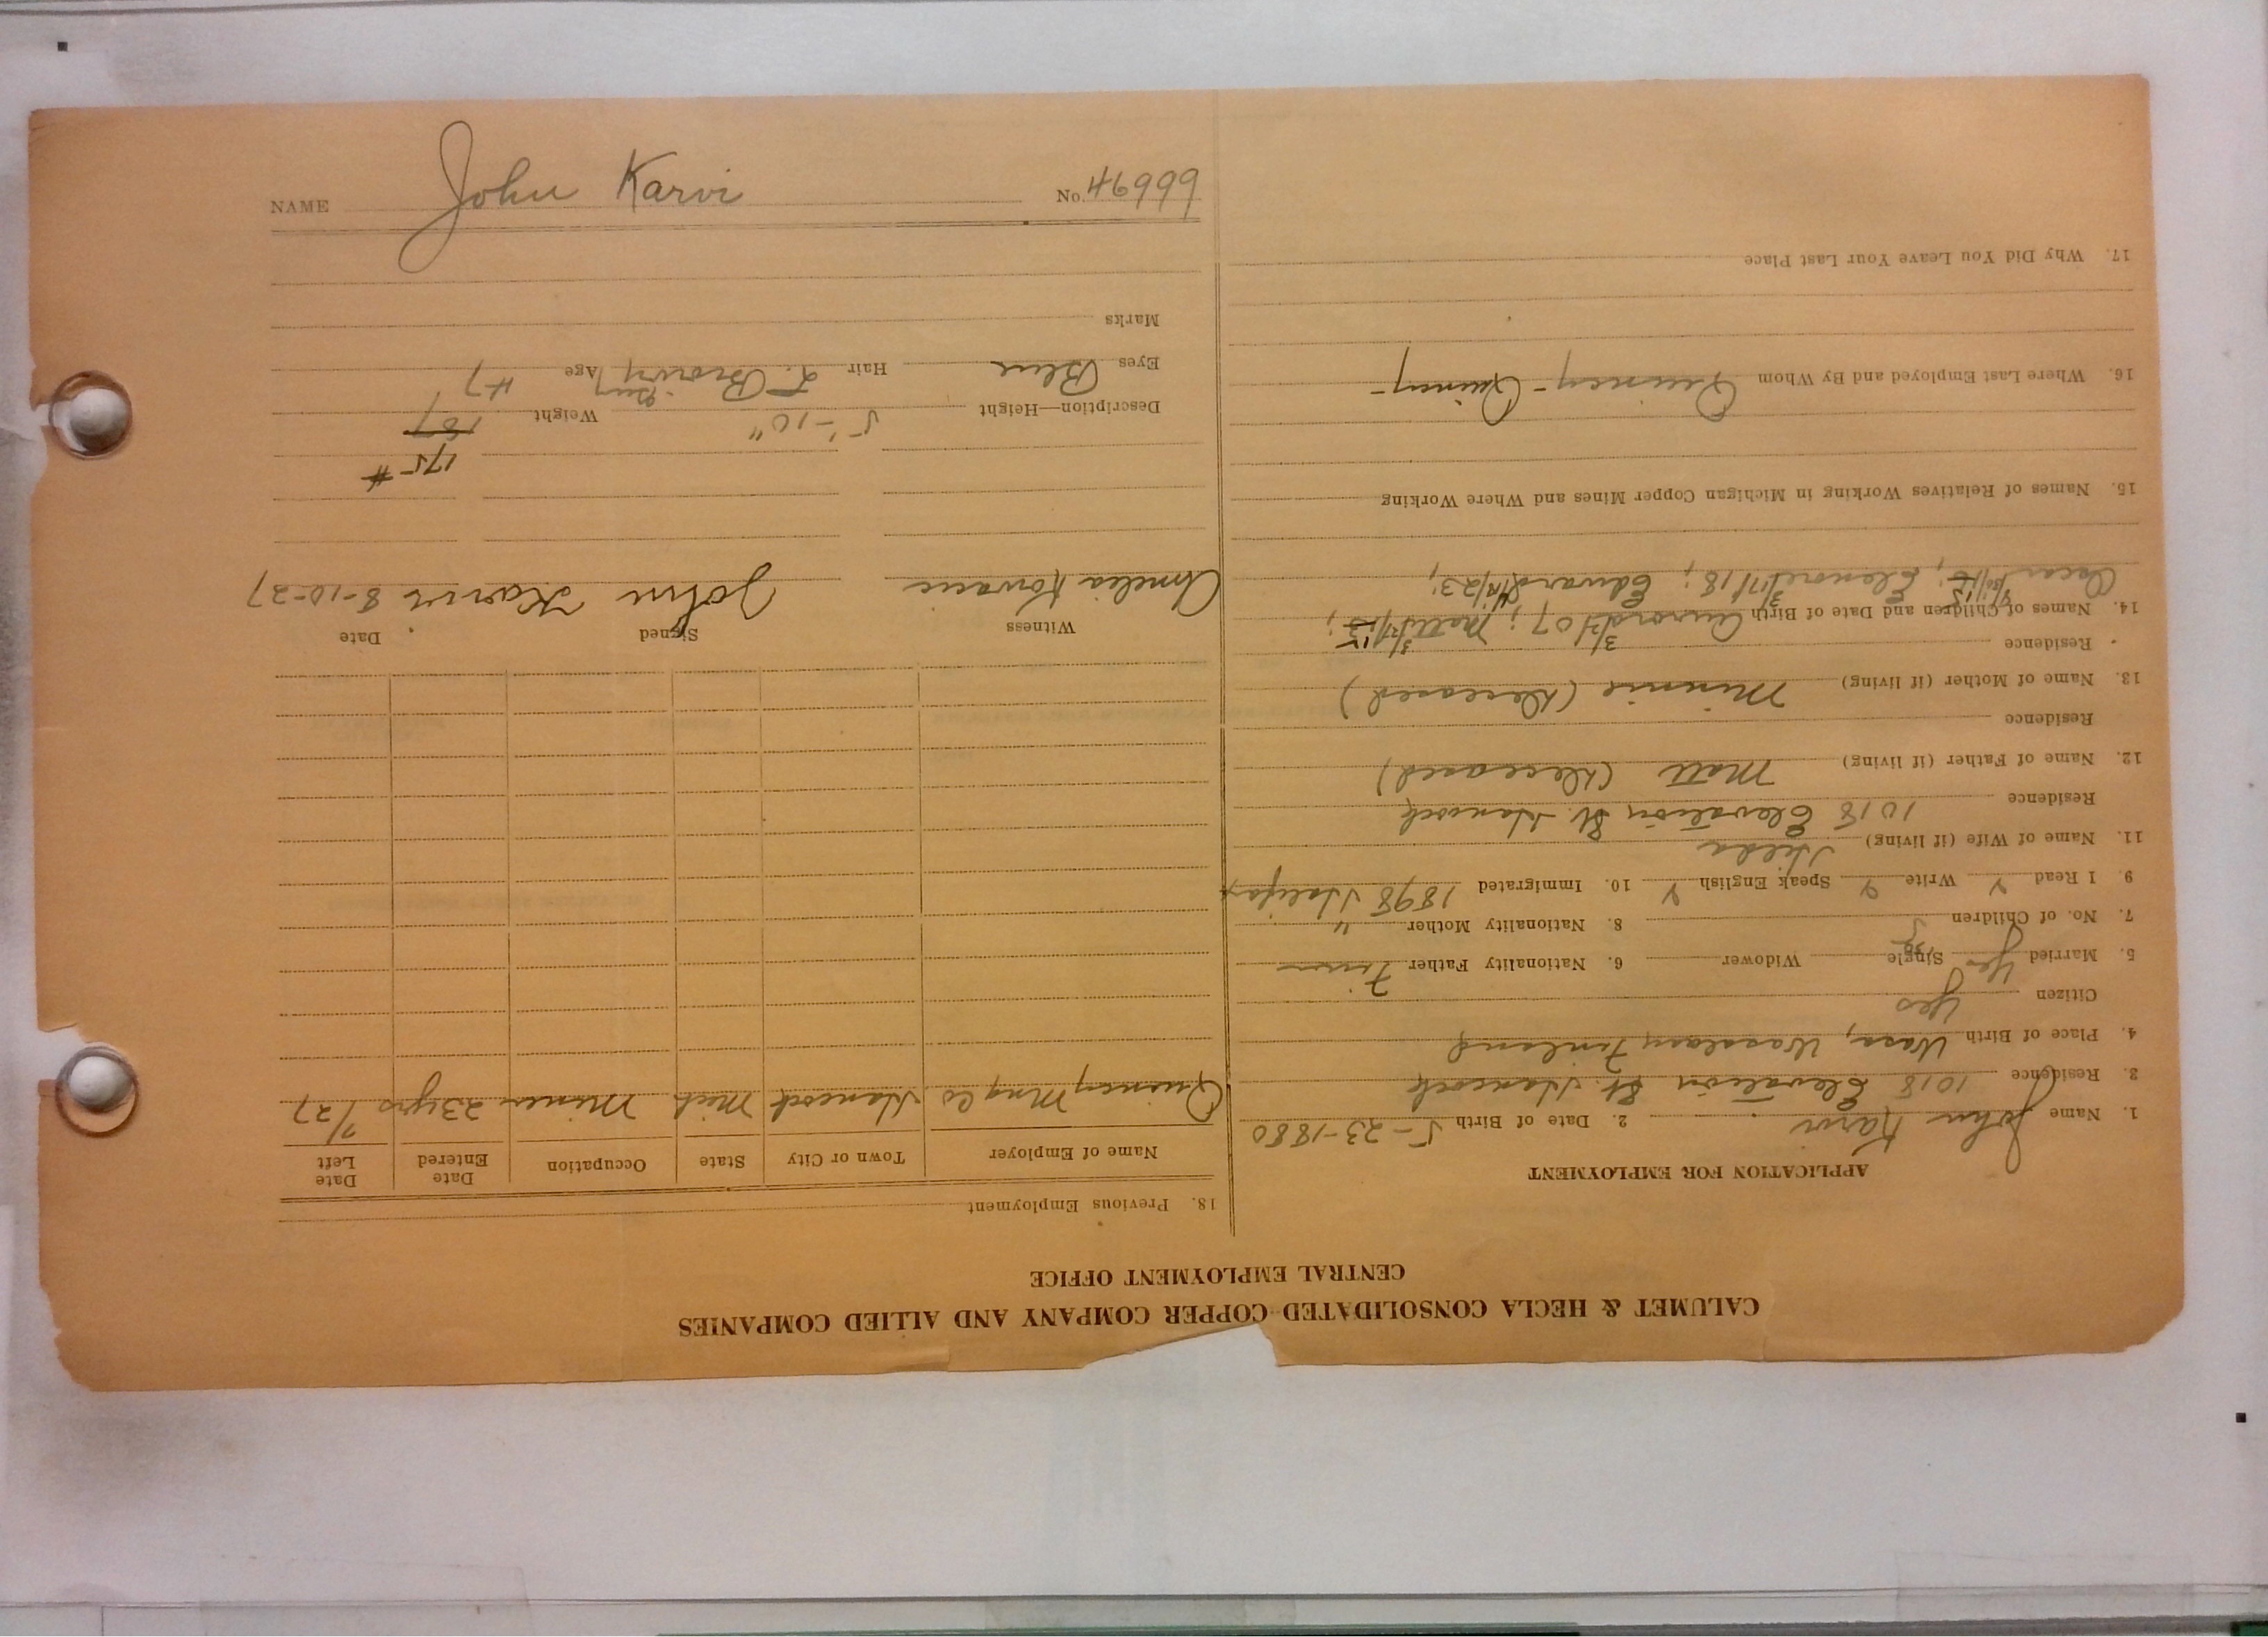 NAME John Karvi No. 46999
CALUMET & HECLA CONSOLIDATED COPPER COMPANY AND ALLIED COMPANIES
CENTRAL EMPLOYMENT OFFICE
APPLICATION FOR EMPLOYMENT
1. Name John Karvi 2. Date of Birth 5-23-1880
3. Residence 1018 Elevation St. Hancock
4. Place of Birth Wasa, Finland
Citizen Yes
5. Married Yes Single Widower 6. Nationality Father Finn
7. No. of Children 5 8. Nationality Mother "
9. I Read Y Write Y Speak English Y 10. Immigrated 1898 Halifax
11. Name of Wife (if living) Hilda
Residence 1018 Elevation St. Hancock
12. Name of Father (if living) Matt (deceased)
Residence
13. Name of Mother (if living) Minnie (deceased)
Residence
14. Names of Children and Date of Birth 07; Matt
Oscar; Elenore 3/17/18; Edward 4/18/23;
15. Names of Relatives Working in Michigan Copper Mines and Where Working
16. Where Last Employed and By Whom Quincy - Quincy -
17. Why Did You Leave Your Last Place
18. Previous Employment
Name of Employer Town or City State Occupation Date Entered Date Left
Quincy Mng Co Hancock Mich Miner 23 yrs 7/27
Witness Signed Date
Amelia John Karvi 8-10-27
175 #
Description—Height 5'-10" Weight 187
Eyes Blue Hair L. Brown Gray Age 47
Marks